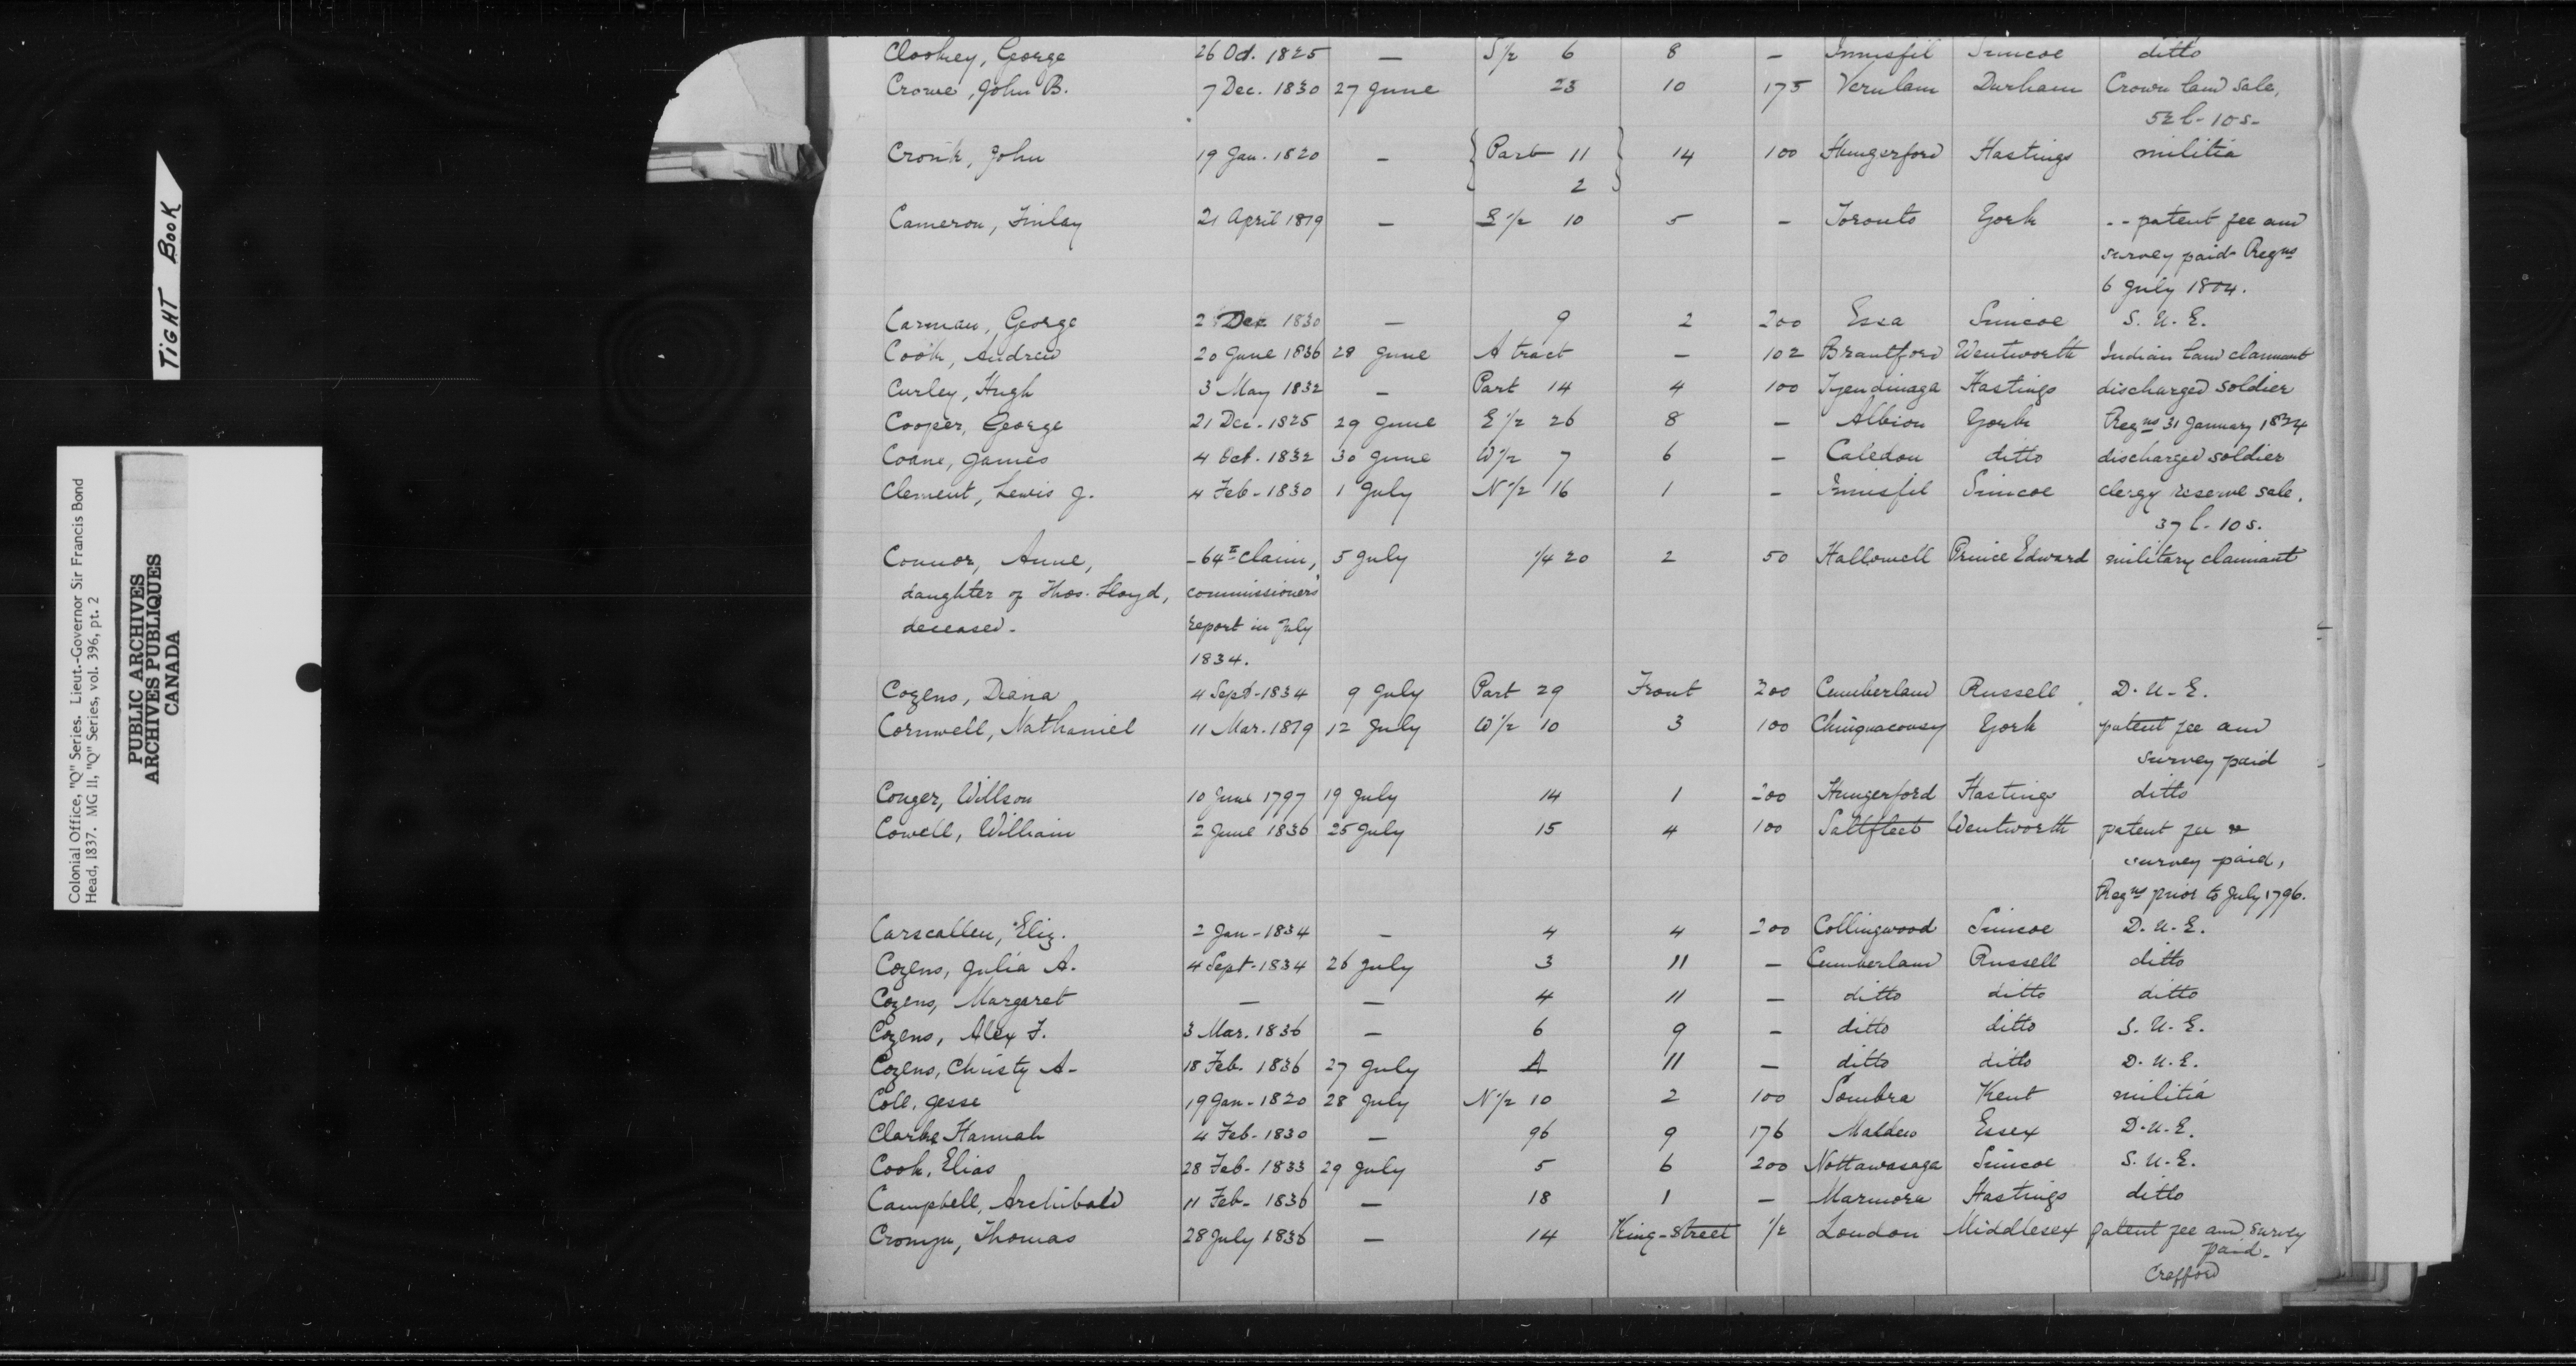 TIGHT BOOK
Colonial Office, "Q" Series. Lieut.-Governor Sir Francis Bond
Head, 1837. MG 11, "Q" Series, vol. 396, pt. 2
PUBLIC ARCHIVES
ARCHIVES PUBLIQUES
CANADA
Clookey, George 26 Oct. 1825 — S 1/2 6 8 — Innisfil Simcoe ditto
Crowe, John B. 7 Dec. 1830 27 June 23 10 175 Verulam Durham Crown land sale,
52 l - 10 s -
Cronk, John 19 Jan. 1820 — { Part 11 } 14 100 Hungerford Hastings militia
2
Cameron, Finlay 21 April 1819 — E 1/2 10 5 — Toronto York - - patent fee and
survey paid Regns
6 July 1804.
Carman, George 2 Dec 1830 — 9 2 200 Essa Simcoe S. U. E.
Cook, Andrew 20 June 1836 28 June A tract — 102 Brantford Wentworth Indian land claimant
Curley, Hugh 3 May 1832 — Part 14 4 100 Tyendinaga Hastings discharged soldier
Cooper, George 21 Dec. 1825 29 June E 1/2 26 8 — Albion York Regns 31 January 1824
Coane, James 4 Oct. 1832 30 June W 1/2 7 6 — Caledon ditto discharged soldier
Clement, Lewis J. 4 Feb - 1830 1 July N 1/2 16 1 — Innisfil Simcoe clergy reserve sale.
37 l - 10 s.
Connor, Anne, - 64th claim, 5 July 1/4 20 2 50 Hallowell Prince Edward military claimant
daughter of Thos. Lloyd, commissioners'
deceased - report in July
1834.
Cozens, Diana 4 Sept - 1834 9 July Part 29 Front 200 Cumberland Russell D. U - E.
Cornwell, Nathaniel 11 Mar. 1819 12 July W 1/2 10 3 100 Chinguacousy York patent fee and
survey paid
Conger, Willson 10 June 1797 19 July 14 1 200 Hungerford Hastings ditto
Cowell, William 2 June 1836 25 July 15 4 100 Saltfleet Wentworth patent fee &
survey paid,
Regns prior to July 1796.
Carscallen, Eliz. 2 Jan - 1834 — 4 4 200 Collingwood Simcoe D. U. E.
Cozens, Julia A. 4 Sept - 1834 26 July 3 11 — Cumberland Russell ditto
Cozens, Margaret — — 4 11 — ditto ditto ditto
Cozens, Alex F. 3 Mar. 1836 — 6 9 — ditto ditto S. U - E.
Cozens, Christy A - 18 Feb. 1836 27 July A 11 — ditto ditto D. U. E.
Coll, Jesse 19 Jan - 1820 28 July N 1/2 10 2 100 Sombra Kent militia
Clarke Hannah 4 Feb - 1830 — 96 9 176 Malden Essex D. U. E.
Cook, Elias 28 Feb - 1833 29 July 5 6 200 Nottawasaga Simcoe S. U - E.
Campbell, Archibald 11 Feb - 1836 — 18 1 — Marmora Hastings ditto
Cronyn, Thomas 28 July 1836 — 14 King - Street 1/2 London Middlesex patent fee and survey
paid -
Crafford